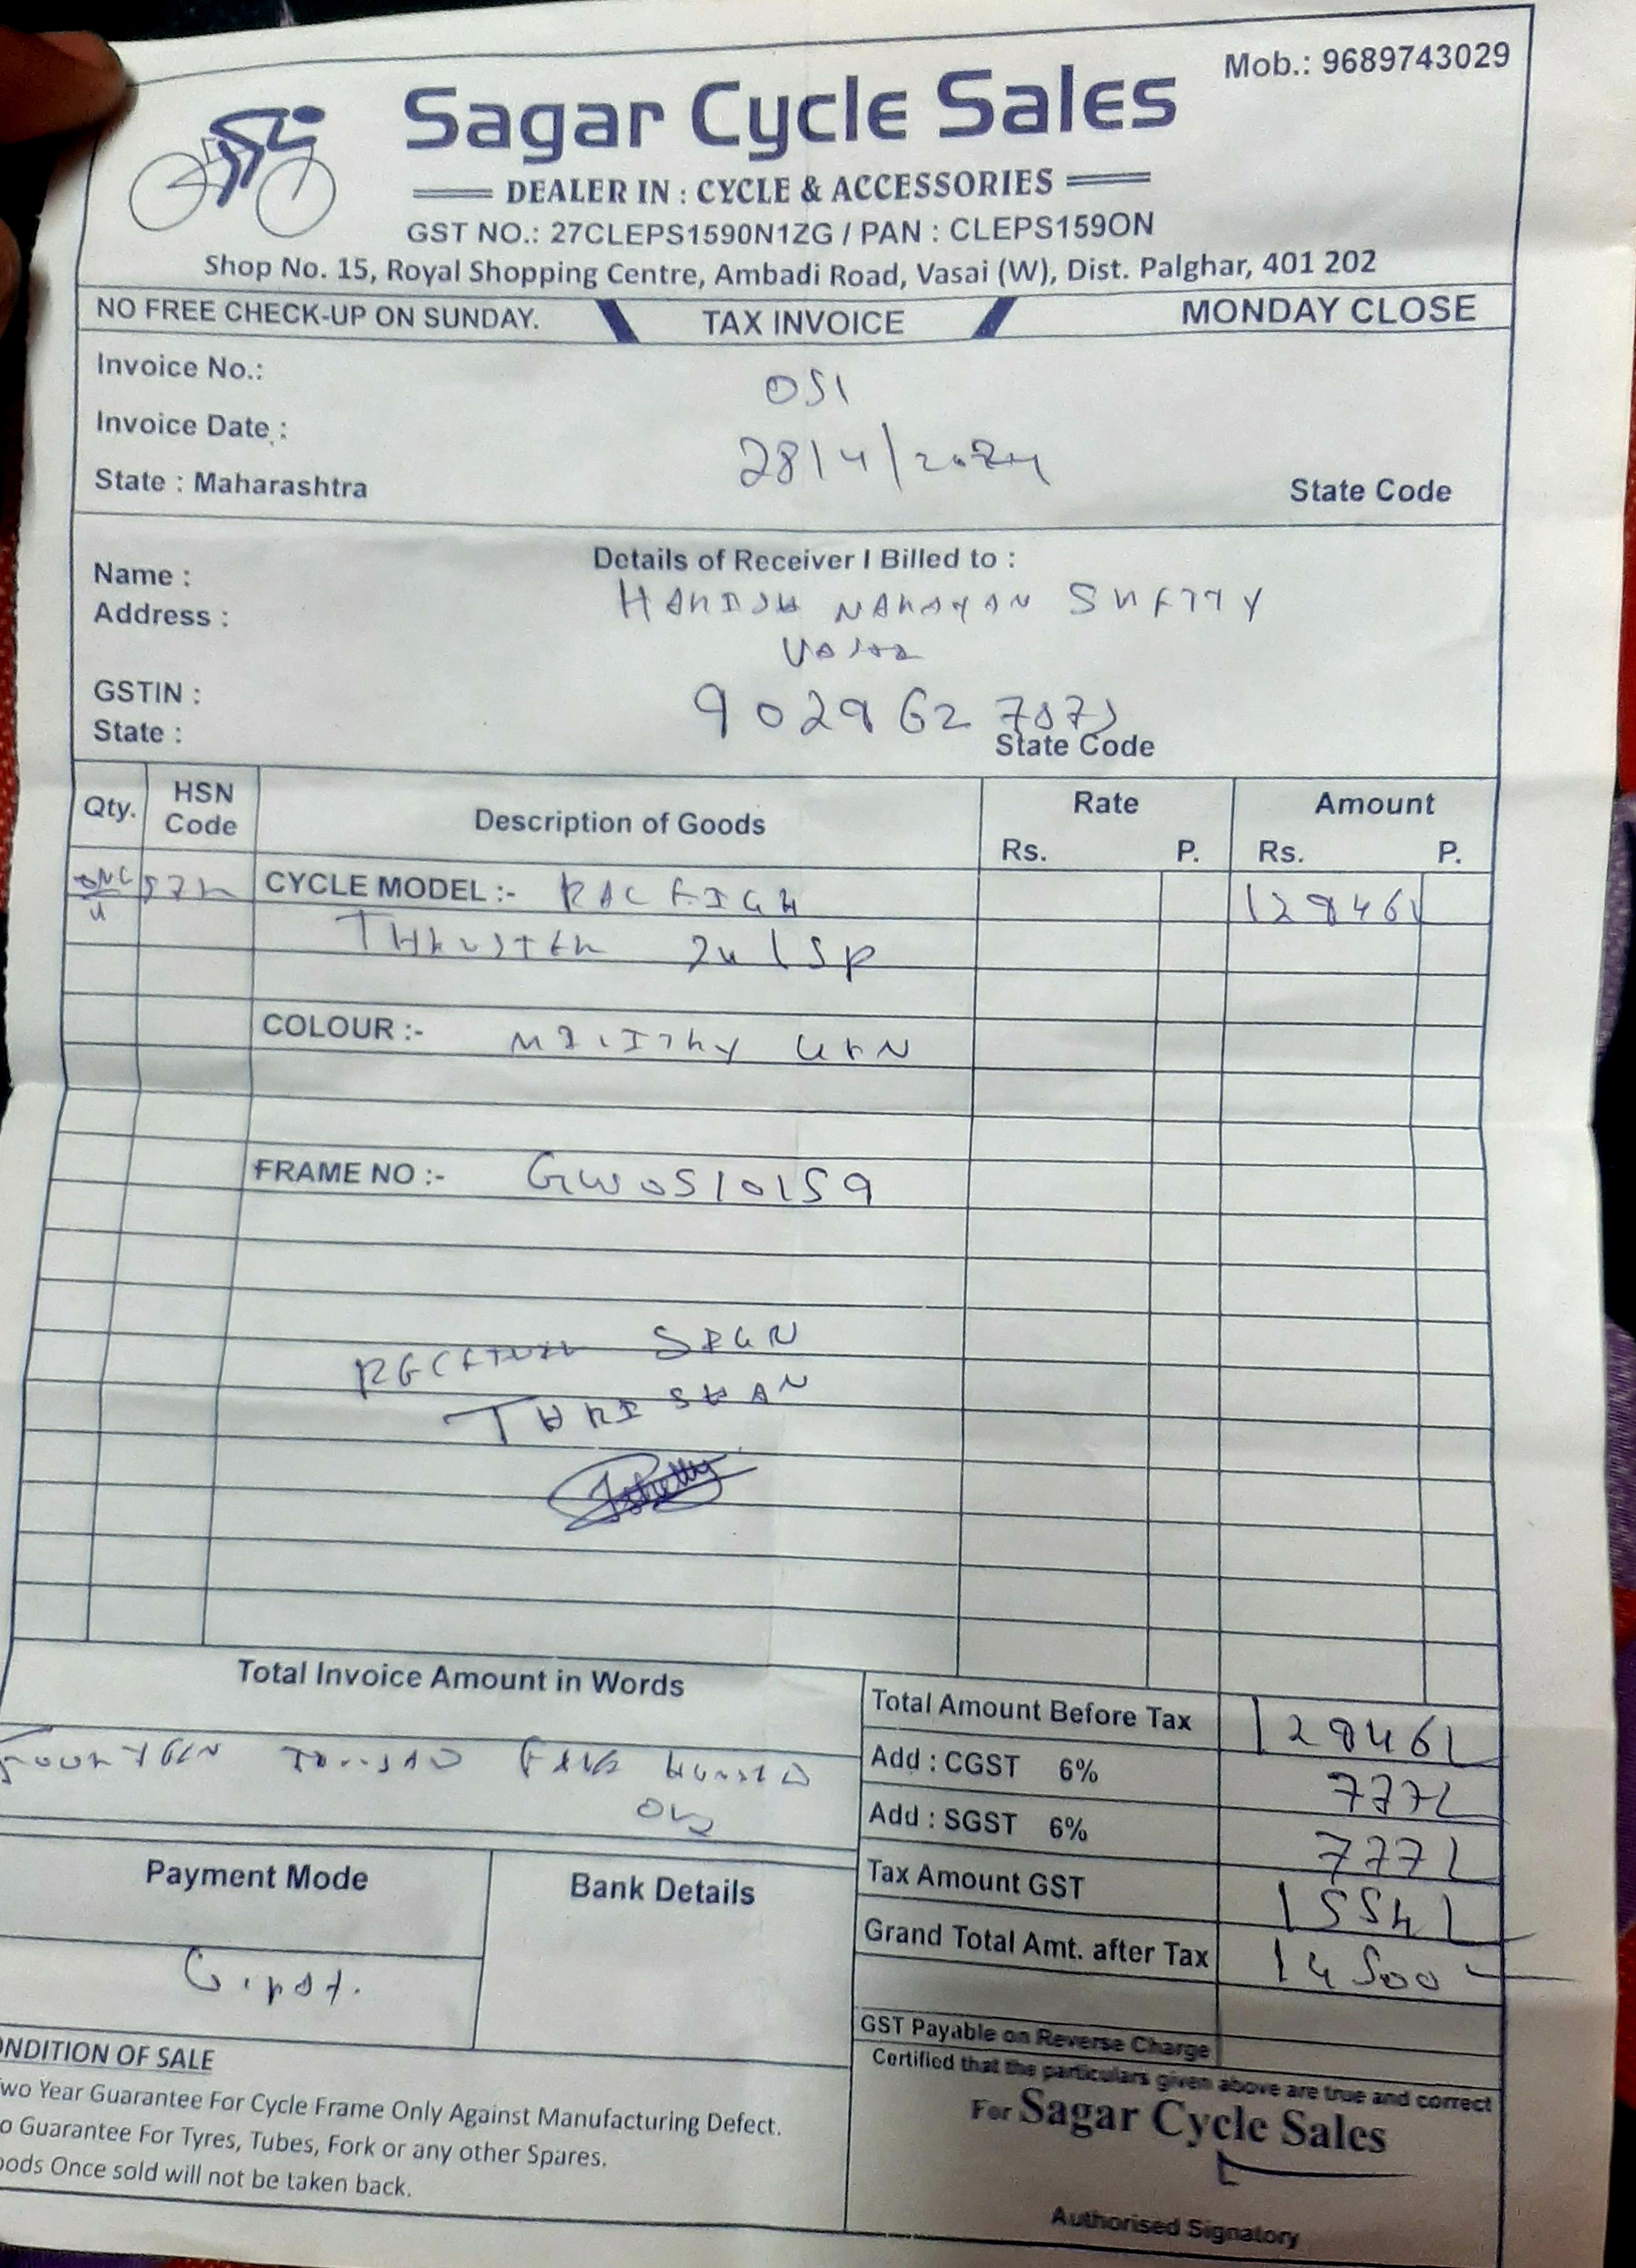 Mob.: 9689743029
Sagar Cycle Sales
DEALER IN : CYCLE & ACCESSORIES
GST NO.: 27CLEPS1590N1ZG / PAN : CLEPS159ON
Shop No. 15, Royal Shopping Centre, Ambadi Road, Vasai (W), Dist. Palghar, 401 202
NO FREE CHECK-UP ON SUNDAY. TAX INVOICE MONDAY CLOSE
Invoice No.: 051
Invoice Date : 28/4/2024
State : Maharashtra State Code
Details of Receiver I Billed to :
Name : HARISH NARAYAN SHETTY
Address :
GSTIN : 902962
State : State Code
Qty. HSN Code Description of Goods Rate Amount
Rs. P. Rs. P.
ONE CYCLE MODEL :- 12946
THRUSTER SP
COLOUR :- MILITRY GRN
FRAME NO :- GW0510159
RECEIVER SIGN
THRISHAN
Shetty
Total Invoice Amount in Words
FOURTEEN FIVE
ONLY
Total Amount Before Tax 12946
Add : CGST 6% 777
Add : SGST 6% 777
Tax Amount GST 1554
Grand Total Amt. after Tax 14500
Payment Mode Bank Details
GST Payable on Reverse Charge
Certified that the particulars given above are true and correct
For Sagar Cycle Sales
Authorised Signatory
ONDITION OF SALE
wo Year Guarantee For Cycle Frame Only Against Manufacturing Defect.
o Guarantee For Tyres, Tubes, Fork or any other Spares.
oods Once sold will not be taken back.